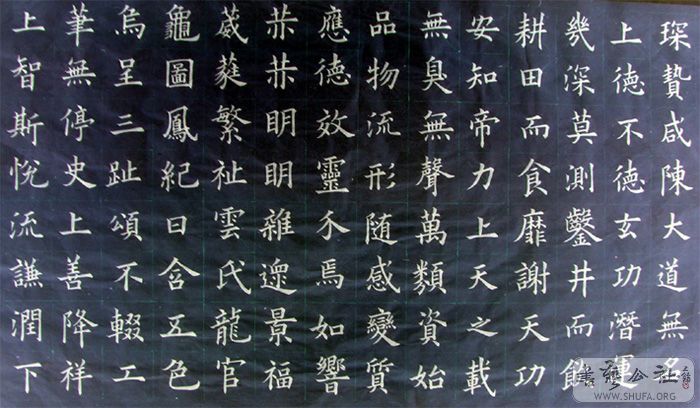 琛贄咸陳大道無名
上德不德玄功潛運
幾深莫測鑿井而飲
耕田而食靡謝天功
安知帝力上天之載
無臭無聲萬類資始
品物流形随感變質
應德效靈介焉如響
赫赫明明雜遝景福
葳蕤繁祉雲氏龍官
龜圖鳳紀日含五色
烏呈三趾頌不輟工
筆無停史上善降祥
上智斯悅流謙潤下
書藝公社
WWW.SHUFA.ORG